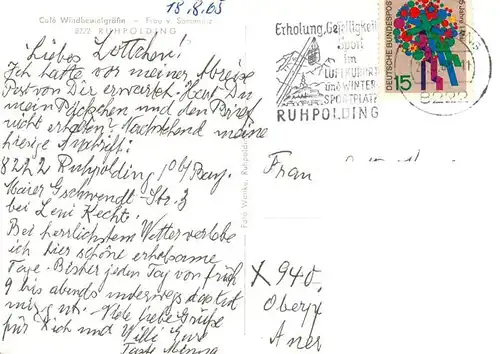 18.8.65
Café Windbeutelgräfin - Frau v. Somnitz
8222 RUHPOLDING
Liebes Lottchen!
Ich hatte vor meiner Abreise
Post von Dir erwartet. Hast Du
mein Päckchen und den Brief
nicht erhalten? Nachstehend meine
hiesige Anschrift:
8222 Ruhpolding Obb/Bay.
Maier Gschwendt-Str. 3
bei Leni Hechte.
Bei herrlichstem Wetter verlebe
ich hier schöne erholsame
Tage. Bisher jeden Tag von früh
9 bis abends unterwegs
mir gut. Viele liebe Grüße
für Dich und Willi Eure
Tante Minna
Erholung, Geselligkeit
Sport
im
LUFTKURORT
und WINTER
SPORTPLATZ
RUHPOLDING
DEUTSCHE BUNDESPOST
15
8222
Foto Wernke, Ruhpolding
Frau
X 940